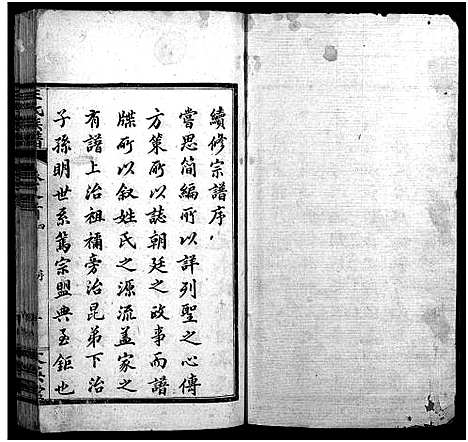 續修宗譜序
嘗思簡編所以詳列聖之心傳
方策所以誌朝廷之政事而譜
牒所以叙姓氏之源流盖家之
有譜上治祖禰旁治昆弟下治
子孫明世系篤宗盟典至鉅也
氏族譜